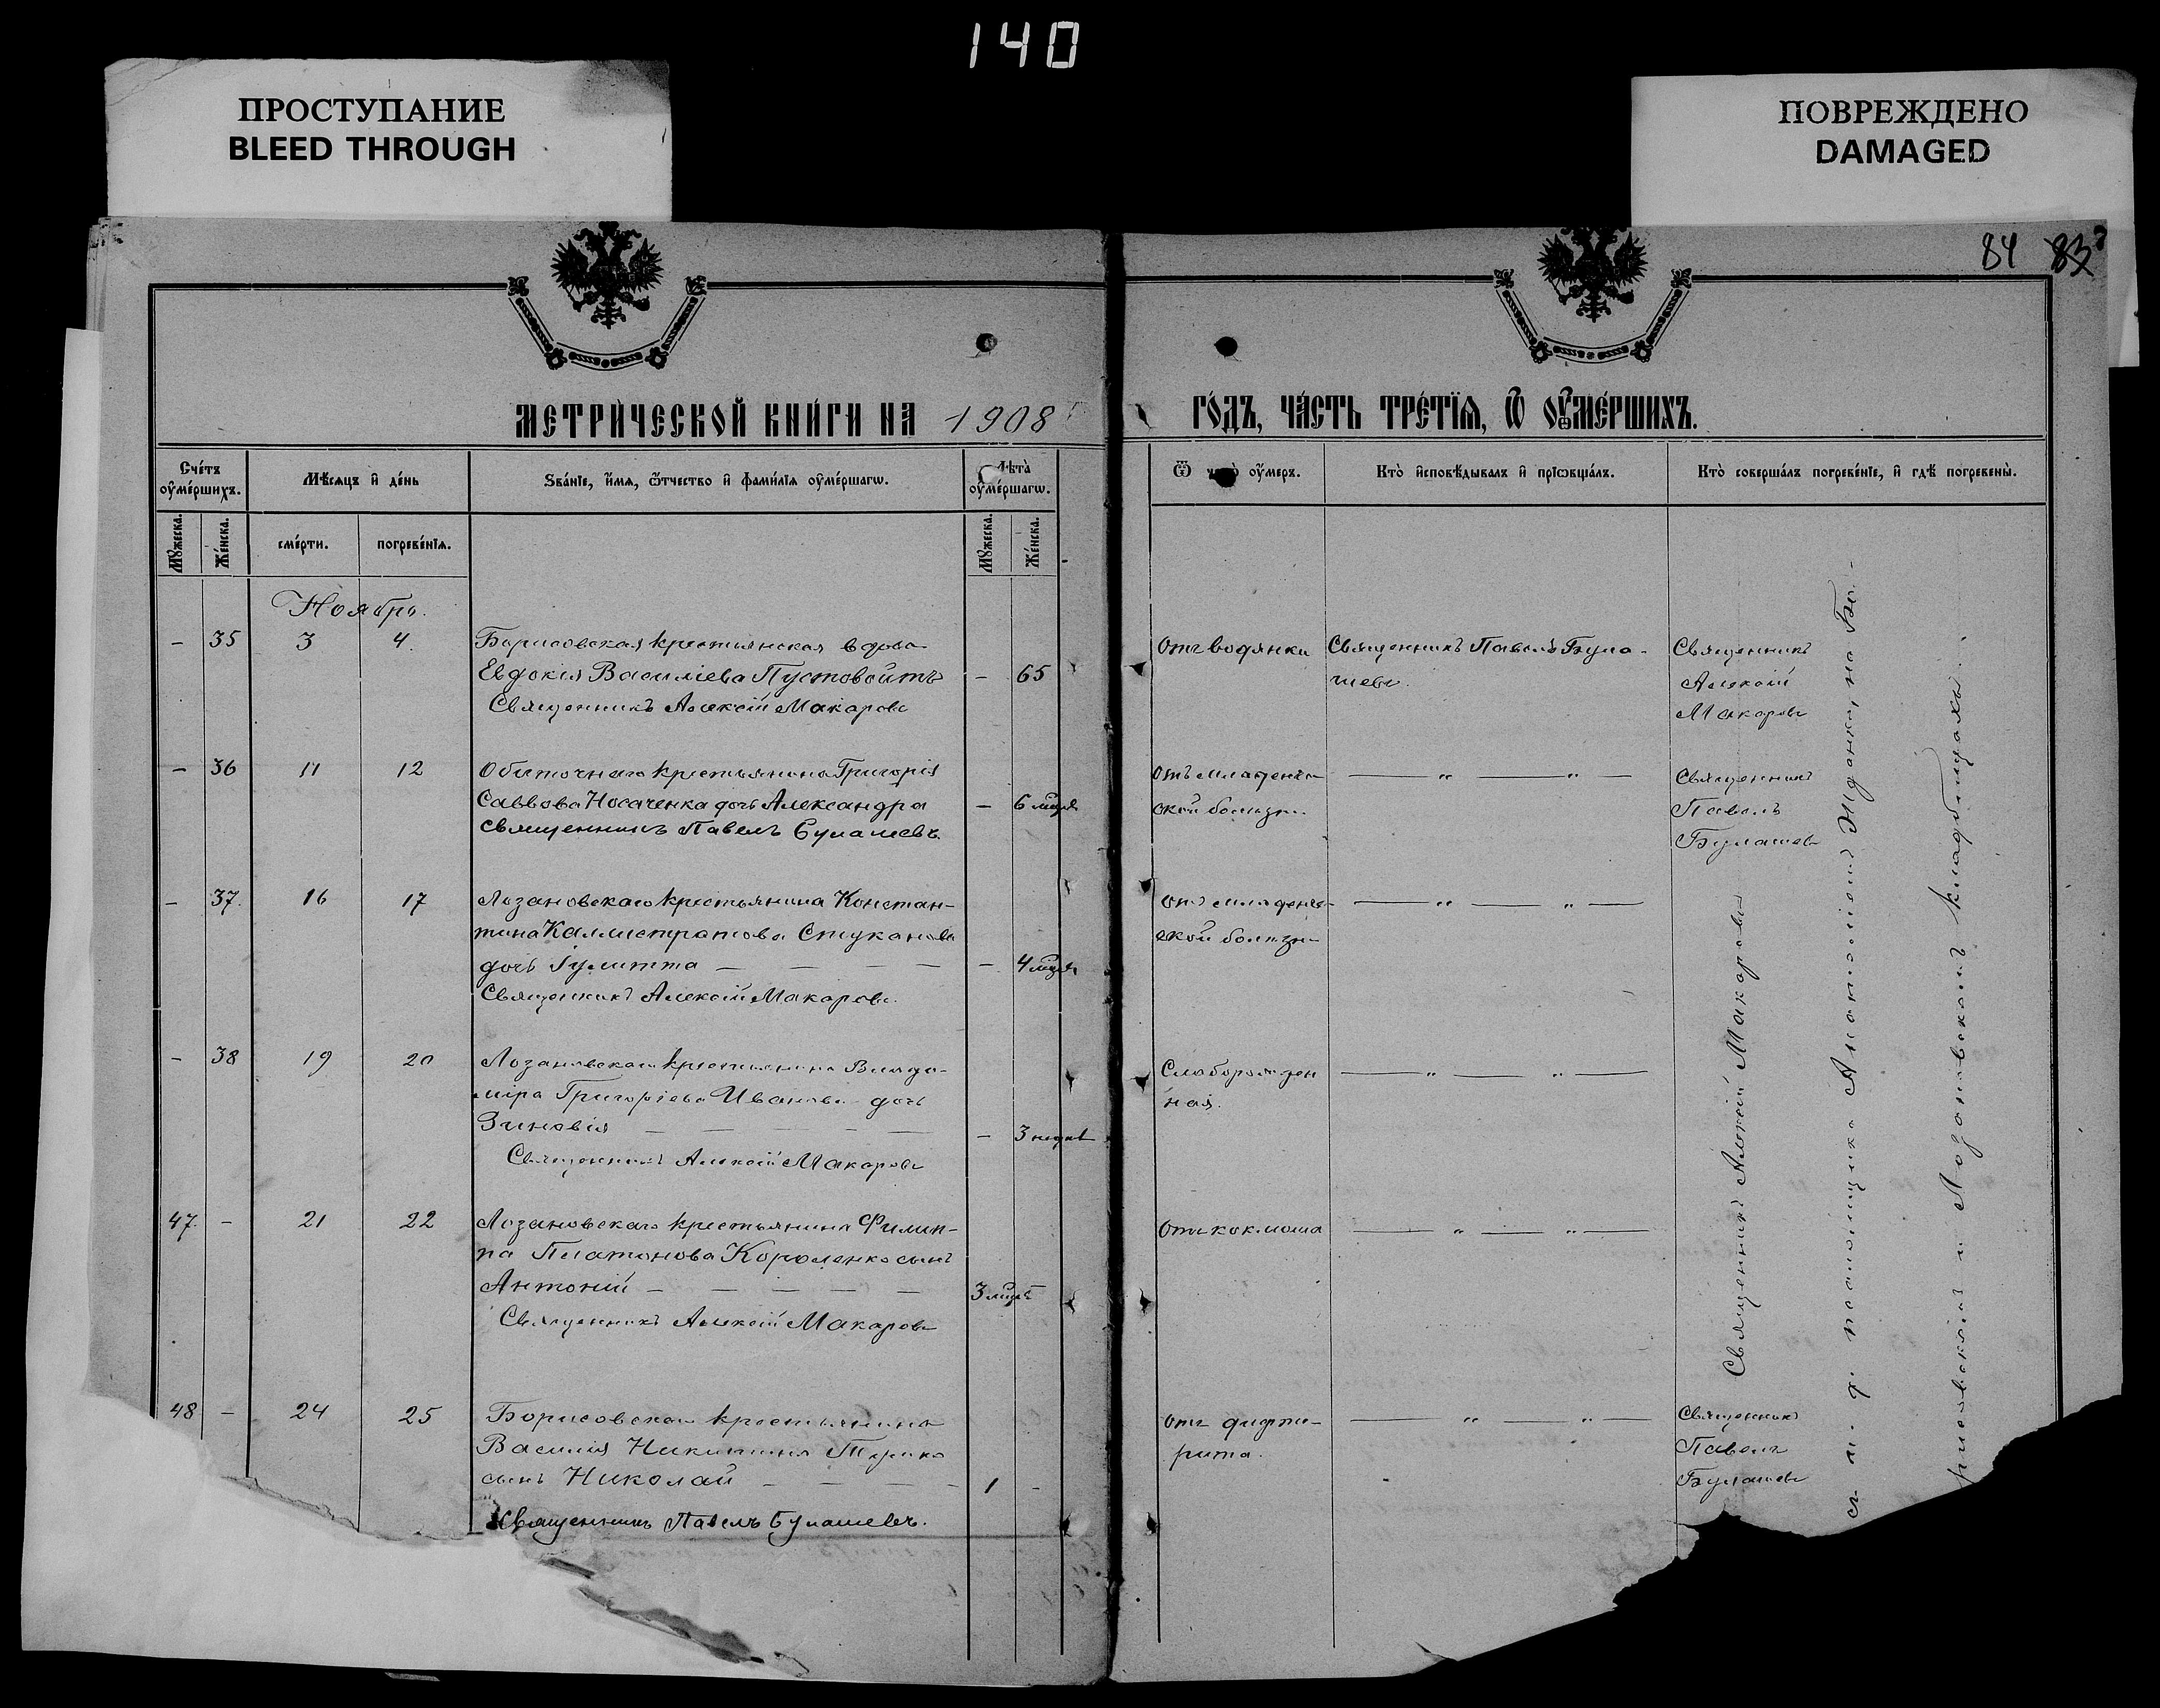 140
ПРОСТУПАНИЕ
BLEED THROUGH
ПОВРЕЖДЕНО
DAMAGED
84 83
МЕТРИ́ЧЕСКОЙ КНИ́ГИ НА 1908 ГО́ДЪ, ЧА́СТЬ ТРЕ́ТЇѦ, Ѿ ОУ҆МЕ́РШИХЪ.
Счéтъ оу҆мéршихъ.
Мѣ́сѧцъ и҆ де́нь
Ѕва́нїе, и҆́мѧ, ѻ҆́тчество и҆ фами́лїѧ оу҆ме́ршагѡ.
Лѣ́та оу҆ме́ршагѡ.
Ѿ чегѡ̀ оу҆́меръ.
Кто̀ и҆сповѣ́дывалъ и҆ прїѡбща́лъ.
Кто̀ соверша́лъ погребе́нїе, и҆ гдѣ̀ погребены̀.
Мꙋ́жеска.
Же́нска.
сме́рти.
погребе́нїѧ.
Мꙋ́жеска.
Же́нска.
Ноябрь.
– 35 3 4. Борисовская крестьянская вдова
Евдокія Василіева Пустовойтъ – 65
Священникъ Алексій Макаровъ
Отъ водянки
Священникъ Павелъ Була-
шевъ.
Священникъ
Алексій
Макаровъ
– 36 11 12 Обиточнаго крестьянина Григорія
Саввова Носаченка дочь Александра – 6 мцѣ
Священникъ Павелъ Булашевъ.
Отъ младенче-
ской болѣзни.
— „ — „ —
Священникъ
Павелъ
Булашевъ
– 37. 16 17 Лозановскаго крестьянина Констан-
тина Каллистратова Стуканова
дочь Іулитта — — — — – 4 мцѣ
Священникъ Алексій Макаровъ.
отъ младенче-
ской болѣзни
— „ — „ —
– 38 19 20 Лозановскаго крестьянина Влади-
міра Григоріева Иванова дочь
Зиновія — — — — – 3 недѣл
Священникъ Алексій Макаровъ
Слаборожден
ная.
— „ — „ —
47. – 21 22 Лозановскаго крестьянина Филип-
па Платонова Короленко сынъ
Антоній — — — — — 3 мцѣ –
Священникъ Алексій Макаровъ
Отъ коклюша
— „ — „ —
48 – 24 25 Борисовскаго крестьянина
Василія Никитина
сынъ Николай — — — — 1 –
Священникъ Павелъ Булашевъ.
отъ дифте-
рита.
— „ — „ —
Священникъ
Павелъ
Булашевъ
Священникъ Алексій Макаровъ
псаломщика Жданко, на Бо-
рисовскомъ и Лозановскомъ кладбищахъ.